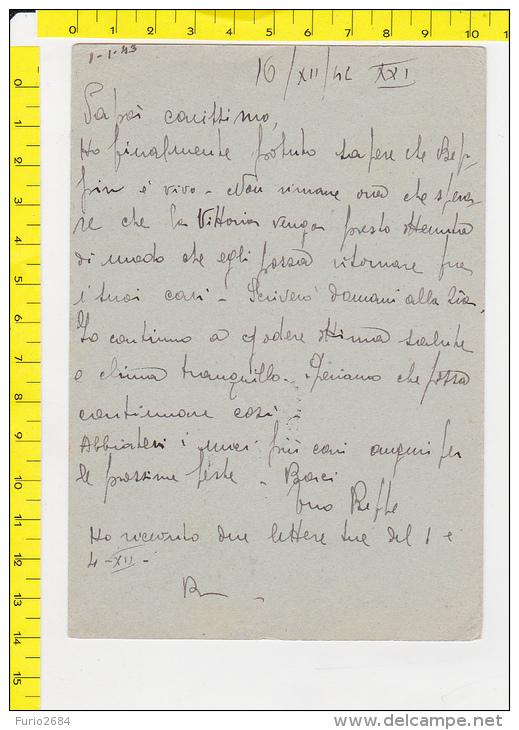 1-1-43
16/XII/42 XXI
Papà carissimo,
Ho finalmente potuto sapere che Bep-
pin è vivo - Non rimane ora che spera-
re che la Vittoria venga presto ottenuta
di modo che egli possa ritornare fra
i suoi cari - Scriverò domani alla Zia.
Io continuo a godere ottima salute
e clima tranquillo - Speriamo che possa
continuare così -
Abbiatevi i miei più cari auguri per
le prossime feste - Baci
tuo Beppe
Ho ricevuto due lettere tue del 1 e
4-XII-
0 1 2 3 4 5 6 7 8 9 10 11
0 1 2 3 4 5 6 7 8 9 10 11 12 13 14 15
Furio2684
delcampe.net